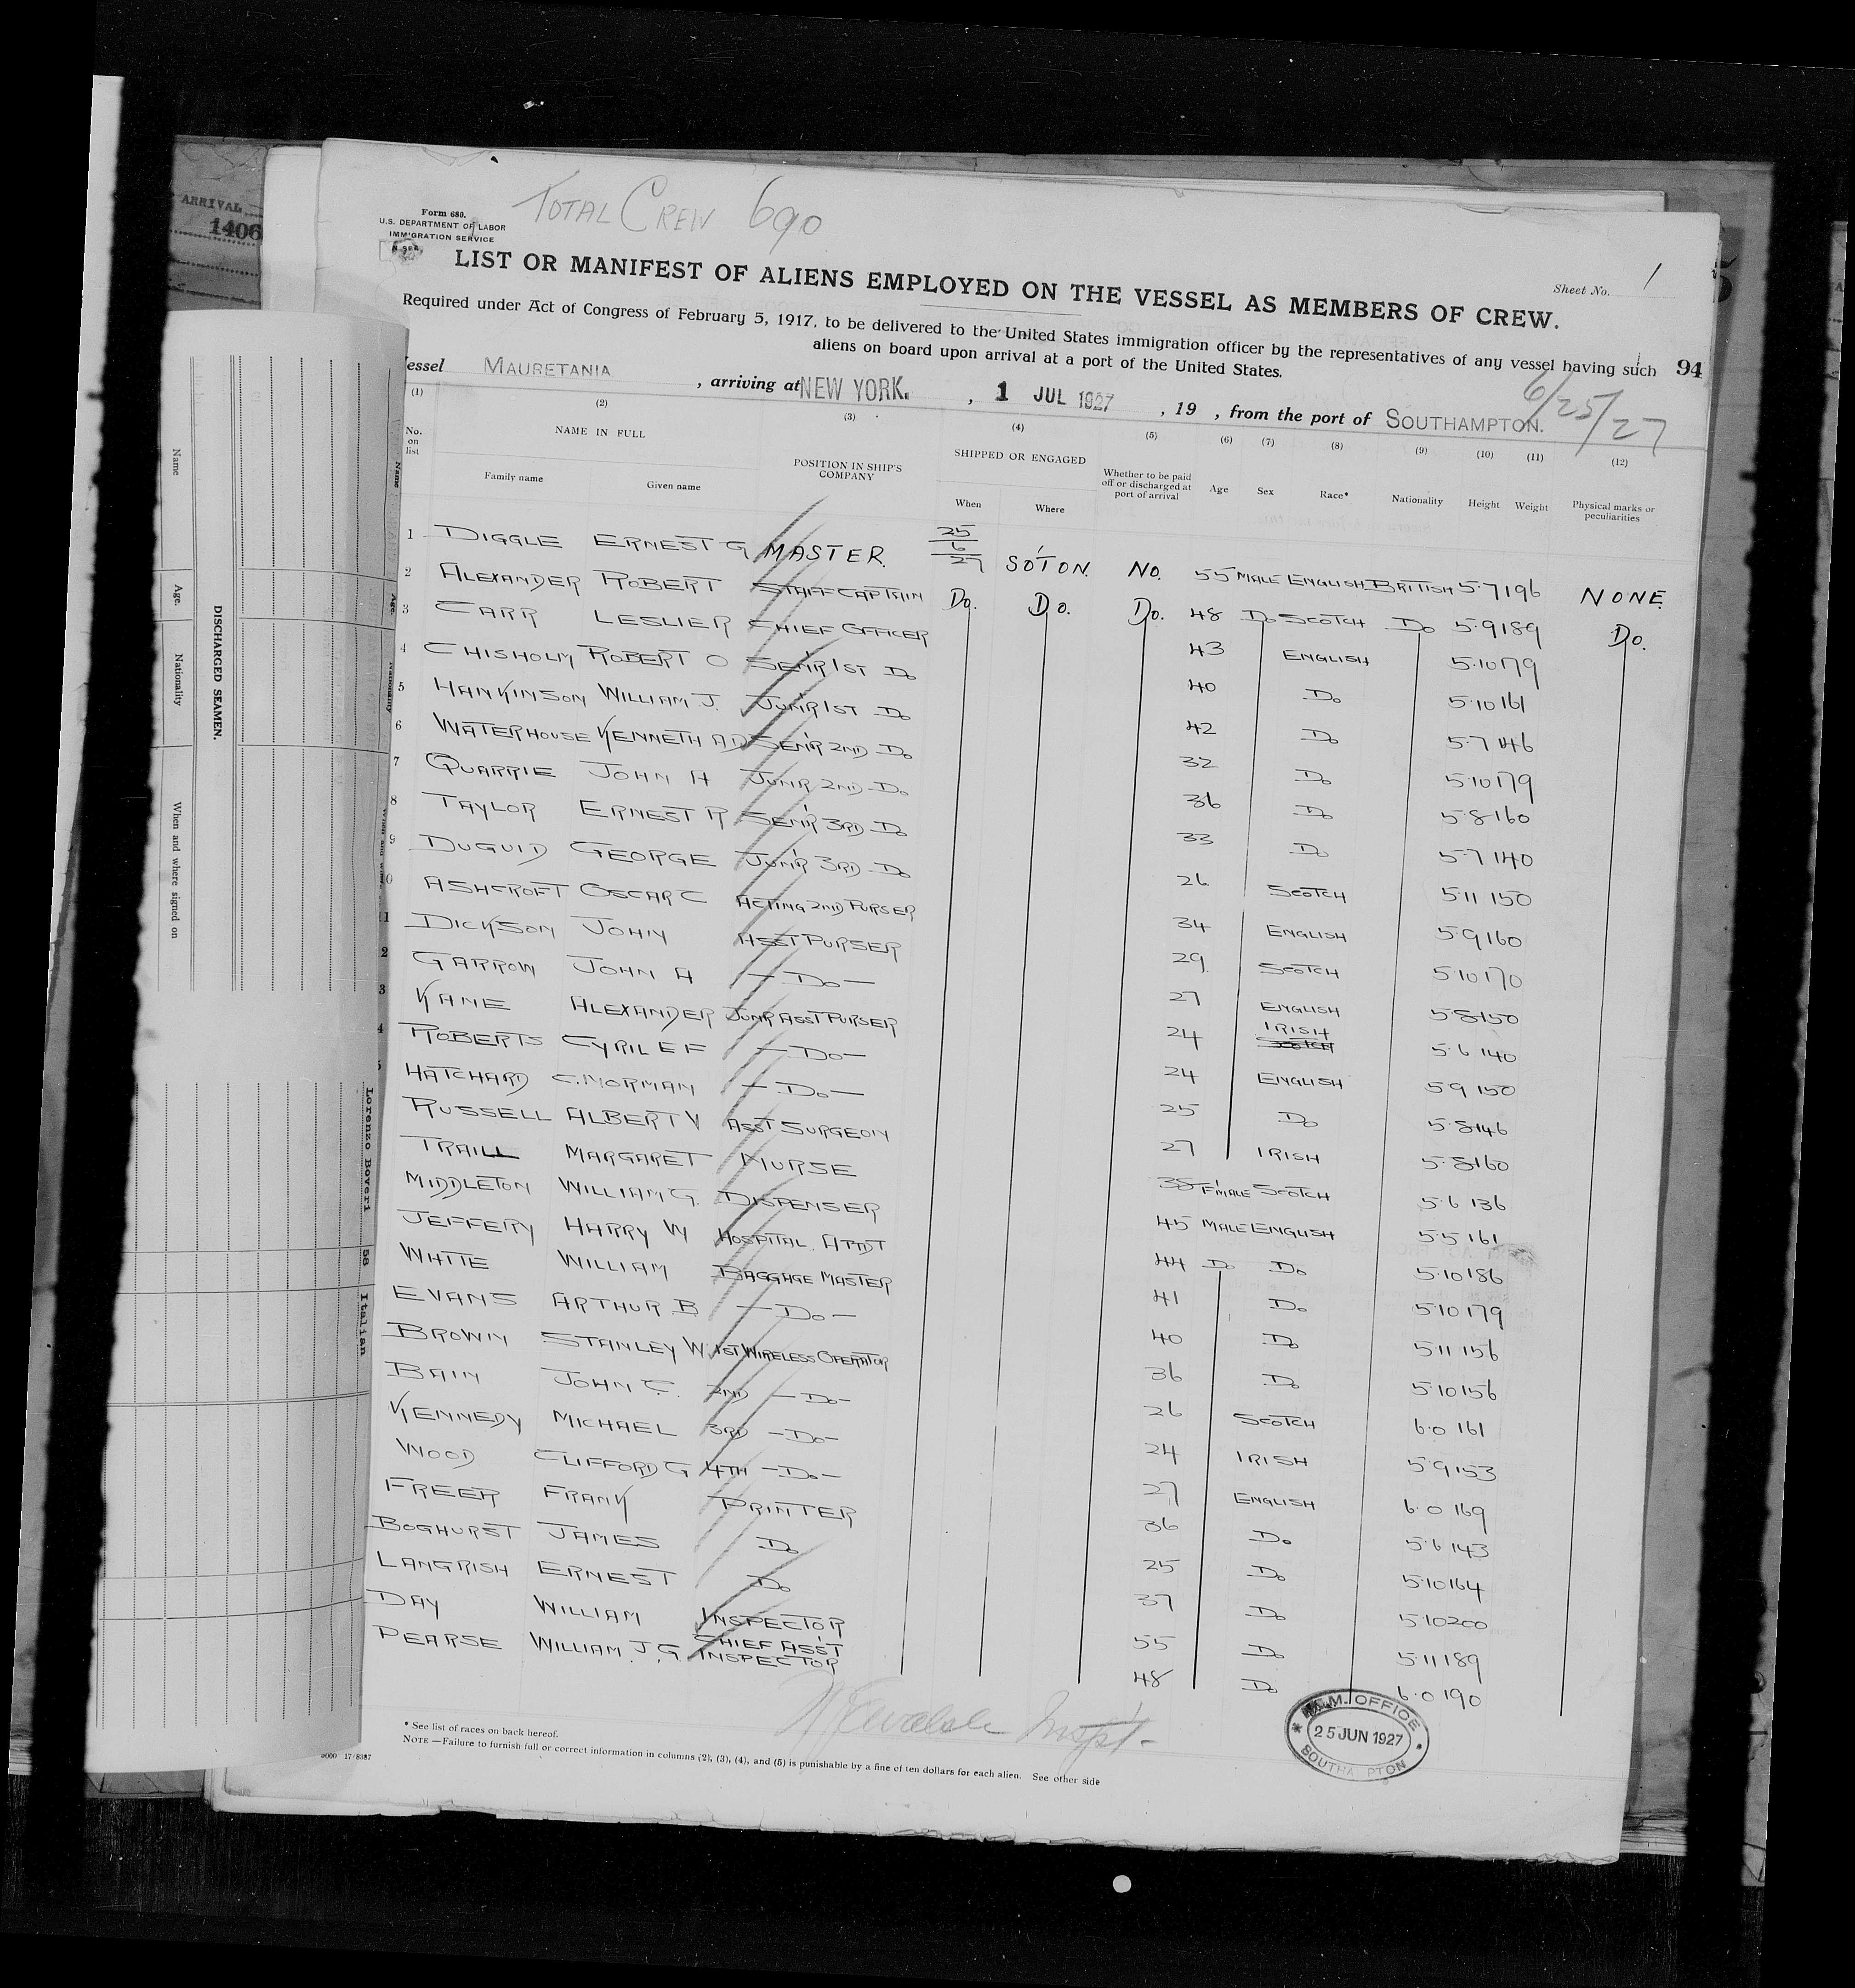 ARRIVAL
1406
TOTAL CREW 690
Form 680.
U.S. DEPARTMENT OF LABOR
IMMIGRATION SERVICE
LIST OR MANIFEST OF ALIENS EMPLOYED ON THE VESSEL AS MEMBERS OF CREW.
Sheet No. 1
Required under Act of Congress of February 5, 1917, to be delivered to the United States immigration officer by the representatives of any vessel having such
aliens on board upon arrival at a port of the United States.
94
essel MAURETANIA , arriving at NEW YORK. , 1 JUL 1927 , 19 , from the port of SOUTHAMPTON.
6/25/27
(1) (2) (3) (4) (5) (6) (7) (8) (9) (10) (11) (12)
No. on list NAME IN FULL POSITION IN SHIP'S COMPANY SHIPPED OR ENGAGED Whether to be paid off or discharged at port of arrival Age Sex Race* Nationality Height Weight Physical marks or peculiarities
Family name Given name When Where
1 DIGGLE ERNEST G MASTER. 25/6/27 SO'TON. NO. 55 MALE ENGLISH BRITISH 5·7 196 NONE
2 ALEXANDER ROBERT STAFF CAPTAIN Do. Do. Do. 48 Do SCOTCH Do 5·9 189 Do.
3 CARR LESLIE R CHIEF OFFICER 43 ENGLISH 5·10 179
4 CHISHOLM ROBERT O SEN'R 1ST Do 40 Do 5·10 161
5 HANKINSON WILLIAM J. JUN'R 1ST Do 42 Do 5·7 146
6 WATERHOUSE KENNETH A D SEN'R 2ND Do 32 Do 5·10 179
7 QUARRIE JOHN H JUN'R 2ND Do 36 Do 5·8 160
8 TAYLOR ERNEST R SEN'R 3RD Do 33 Do 5·7 140
9 DUGUID GEORGE JUN'R 3RD Do 26 SCOTCH 5·11 150
10 ASHCROFT OSCAR C ACTING 2ND PURSER 34 ENGLISH 5·9 160
11 DICKSON JOHN ASST PURSER 29 SCOTCH 5·10 170
2 GARROW JOHN A — Do — 27 ENGLISH 5·8 150
3 KANE ALEXANDER JUN'R ASST PURSER 24 IRISH SCOTCH 5·6 140
4 ROBERTS CYRIL E F — Do — 24 ENGLISH 5·9 150
5 HATCHARD C. NORMAN — Do — 25 Do 5·8 146
RUSSELL ALBERT V ASST SURGEON 27 IRISH 5·8 160
TRAILL MARGARET NURSE 38 F'MALE SCOTCH 5·6 136
MIDDLETON WILLIAM G. DISPENSER 45 MALE ENGLISH 5·5 161
JEFFERY HARRY W HOSPITAL. ATTDT 44 Do Do 5·10 186
WHITE WILLIAM BAGGAGE MASTER 41 Do 5·10 179
EVANS ARTHUR B — Do — 40 Do 5·11 156
BROWN STANLEY W. 1ST WIRELESS OPERATOR 36 Do 5·10 156
BAIN JOHN C. 2ND — Do — 26 SCOTCH 6·0 161
KENNEDY MICHAEL 3RD — Do — 24 IRISH 5·9 153
WOOD CLIFFORD G 4TH — Do — 27 ENGLISH 6·0 169
FREER FRANK PRINTER 36 Do 5·6 143
BOGHURST JAMES Do 25 Do 5·10 164
LANGRISH ERNEST Do 37 Do 5·10 200
DAY WILLIAM INSPECTOR 55 Do 5·11 189
PEARSE WILLIAM. J. G. CHIEF ASS'T INSPECTOR 48 Do 6·0 190
Inspt-
OFFICE
25 JUN 1927
* See list of races on back hereof.
NOTE—Failure to furnish full or correct information in columns (2), (3), (4), and (5) is punishable by a fine of ten dollars for each alien. See other side
17/8387
DISCHARGED SEAMEN.
Name
Age.
Nationality
When and where signed on
Lorenzo Boveri 58 Italian